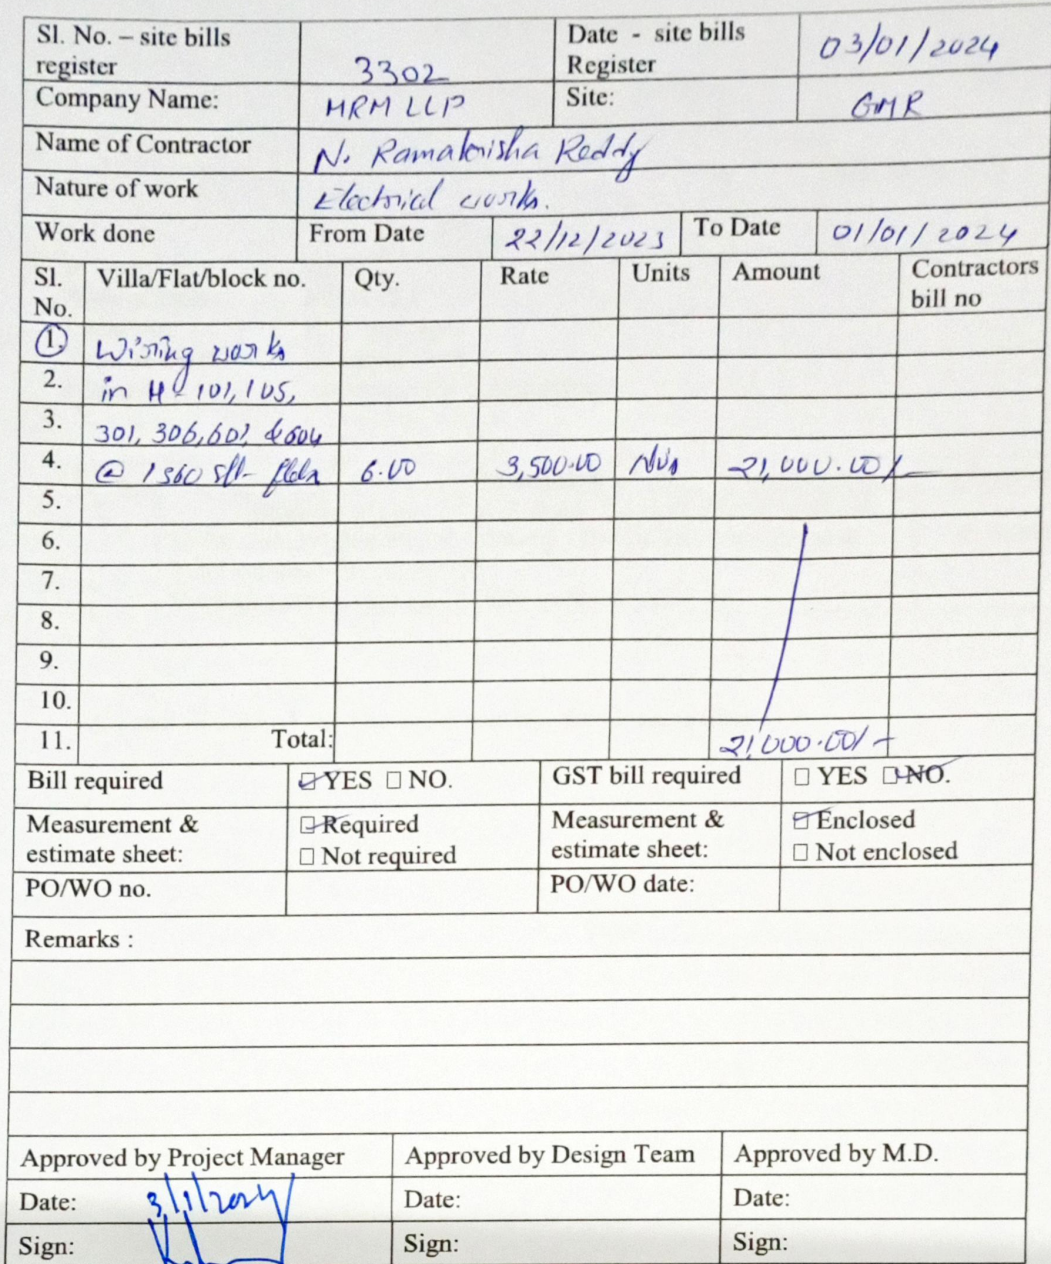 Sl. No. – site bills register 3302 Date - site bills Register 03/01/2024
Company Name: MRM LLP Site: GMR
Name of Contractor N. Ramakrisha Reddy
Nature of work Electrical works.
Work done From Date 22/12/2023 To Date 01/01/2024
Sl. No. Villa/Flat/block no. Qty. Rate Units Amount Contractors bill no
1. Wiring works
2. in 101, 105,
3. 301, 306, 601, & 604
4. @ 1360 sft 6.00 3,500.00 Nos 21,000.00/-
5.
6.
7.
8.
9.
10.
11. Total: 21,000.00/-
Bill required YES NO. GST bill required YES NO.
Measurement & estimate sheet: Required Not required Measurement & estimate sheet: Enclosed Not enclosed
PO/WO no. PO/WO date:
Remarks :
Approved by Project Manager Approved by Design Team Approved by M.D.
Date: 3/1/2024 Date: Date:
Sign: Sign: Sign: